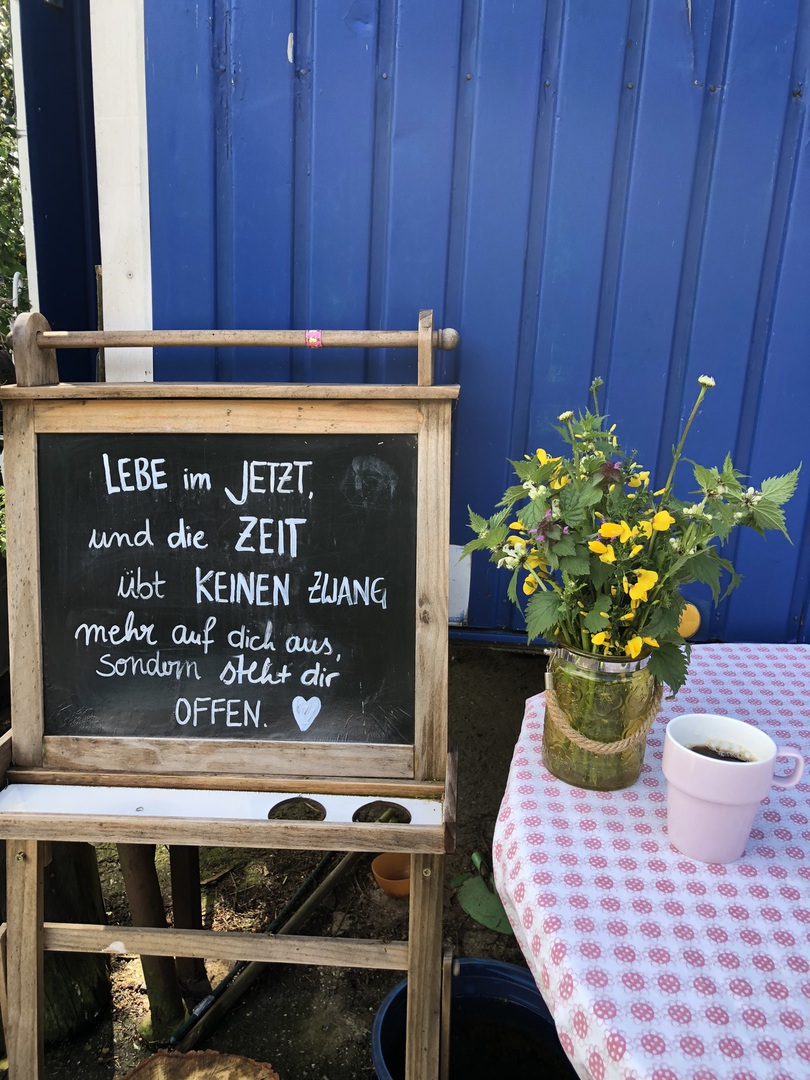 LEBE im JETZT,
und die ZEIT
übt KEINEN ZWANG
mehr auf dich aus,
sondern steht dir
OFFEN.